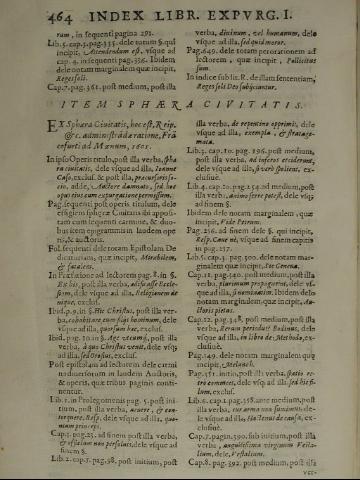 464 INDEX LIBR. EXPVRG. I.
rum, in sequenti pagina 291.
Lib. 5. cap. 3. pag. 335. dele totum §. qui
incipit, Attendendum est, vsque ad
cap. 4. in sequenti pag. 336. Ibidem
dele notam marginalem quæ incipit,
Reges soli.
Cap. 7. pag. 361. post medium, post illa
verba, diuinum, vel humanum, dele
vsque ad illa, sed quid moror.
Pag. 649. dele totam perorationem ad
lectorem, quæ incipit, Pollicitus
sum.
In indice sub lit. R. dele illam sententiam,
Reges soli Deo subijciuntur.
ITEM SPHÆRA CIVITATIS.
EX Sphæra Ciuitatis, hoc est, Reip.
&c. administrãdæ ratione, Frã
cofurti ad Mœnum, 1602.
In ipso Operis titulo, post illa verba, sphæ
ra ciuitatis, dele vsque ad illa, Ioanne
Caso, exclus. & post illa,
adde, Auctore damnato, sed hoc
opus tãtum expurgatione permissum.
Pag. sequenti post operis titulum, dele
effigiem sphæræ Ciuitatis ibi appositam
cum sequenti carmine, & duobus
item epigrammatis in laudem operis,
& auctoris.
Fol. sequenti dele totam Epistolam De
dicatoriam, quæ incipit, Mirabilem,
& fatalem.
In Præfatione ad lectorem pag. 8. in §.
Ex his, post illa verba,
dele vsque ad illa, Religionem denique,
exclus.
Ibid. p. 9. in §. His Christus, post illa verba,
dele
vsque ad illa, quorsum hæc, exclus.
Ibid. pag. 10. in §. Age vecumq́, post illa
verba, à quo Christus venit, dele vsque
ad illa, sed Orosius, exclus.
Post epistolam ad lectorem dele carmina
diuersorum in laudem Auctoris,
& operis, quæ tribus paginis continentur.
Lib. 1. in Prolegomenis pag. 5. post initium,
post illa verba, acuere, & contorquere,
dele vsque ad illa, quoniam
principi.
Cap. 3. pag. 25. ad finem post illa verba,
& dele vsque ad
finem §.
Lib. 2. cap. 7. pag. 98. post initium, post
illa verba, de repentino opprimit, dele
vsque ad illa, exempla, & stratagemata.
Lib. 3. cap. 10. pag. 196. post medium,
post illa verba, ad inferos deciderent,
dele vsque ad illa, si verò stolient, exclusiue.
Lib. 4. cap. 10. pag. 254. ad medium, post
illa verba, animo ferre potest, dele vsque
ad finem §.
Ibidem dele notam marginalem, quæ
incipit, Vide Portum.
Pag. 256. ad finem dele §. qui incipit,
Resp. Cane nè, vsque ad finem capitis
in pag. 257.
Lib. 5. cap. 4. pag. 300. dele notam marginalem
quæ incipit, Ita Geneua.
Cap. 12. pag. 340. post medium, post illa
verba, plurimum propagarint, dele vsque
ad illa, Ibidem dele
notam marginalem quæ incipit, Auctoris
pietas.
Cap. 12. pag. 348. post medium, post illa
verba, Rerum periodus? Bodinus, dele
vsque ad illa, in libro de Methodo, exclusiue.
Pag. 349. dele notam marginalem quę
incipit, Melanch.
Pag. 351. initio, post illa verba, statio retrò
commeet, dele vsque ad illa, sed his finem,
exclus.
Lib. 6. cap. 1. pag. 358. ante medium, post
illa verba, cur arma non sumimus, dele
vsque ad illa, Hactenus de causa, exclusiuè.
Cap. 7. pagin. 390. sub initium, post illa
verba, augustissima virginum Vestalium,
dele, Vestalium.
Cap. 8. pag. 392. post medium, post illa
ver-